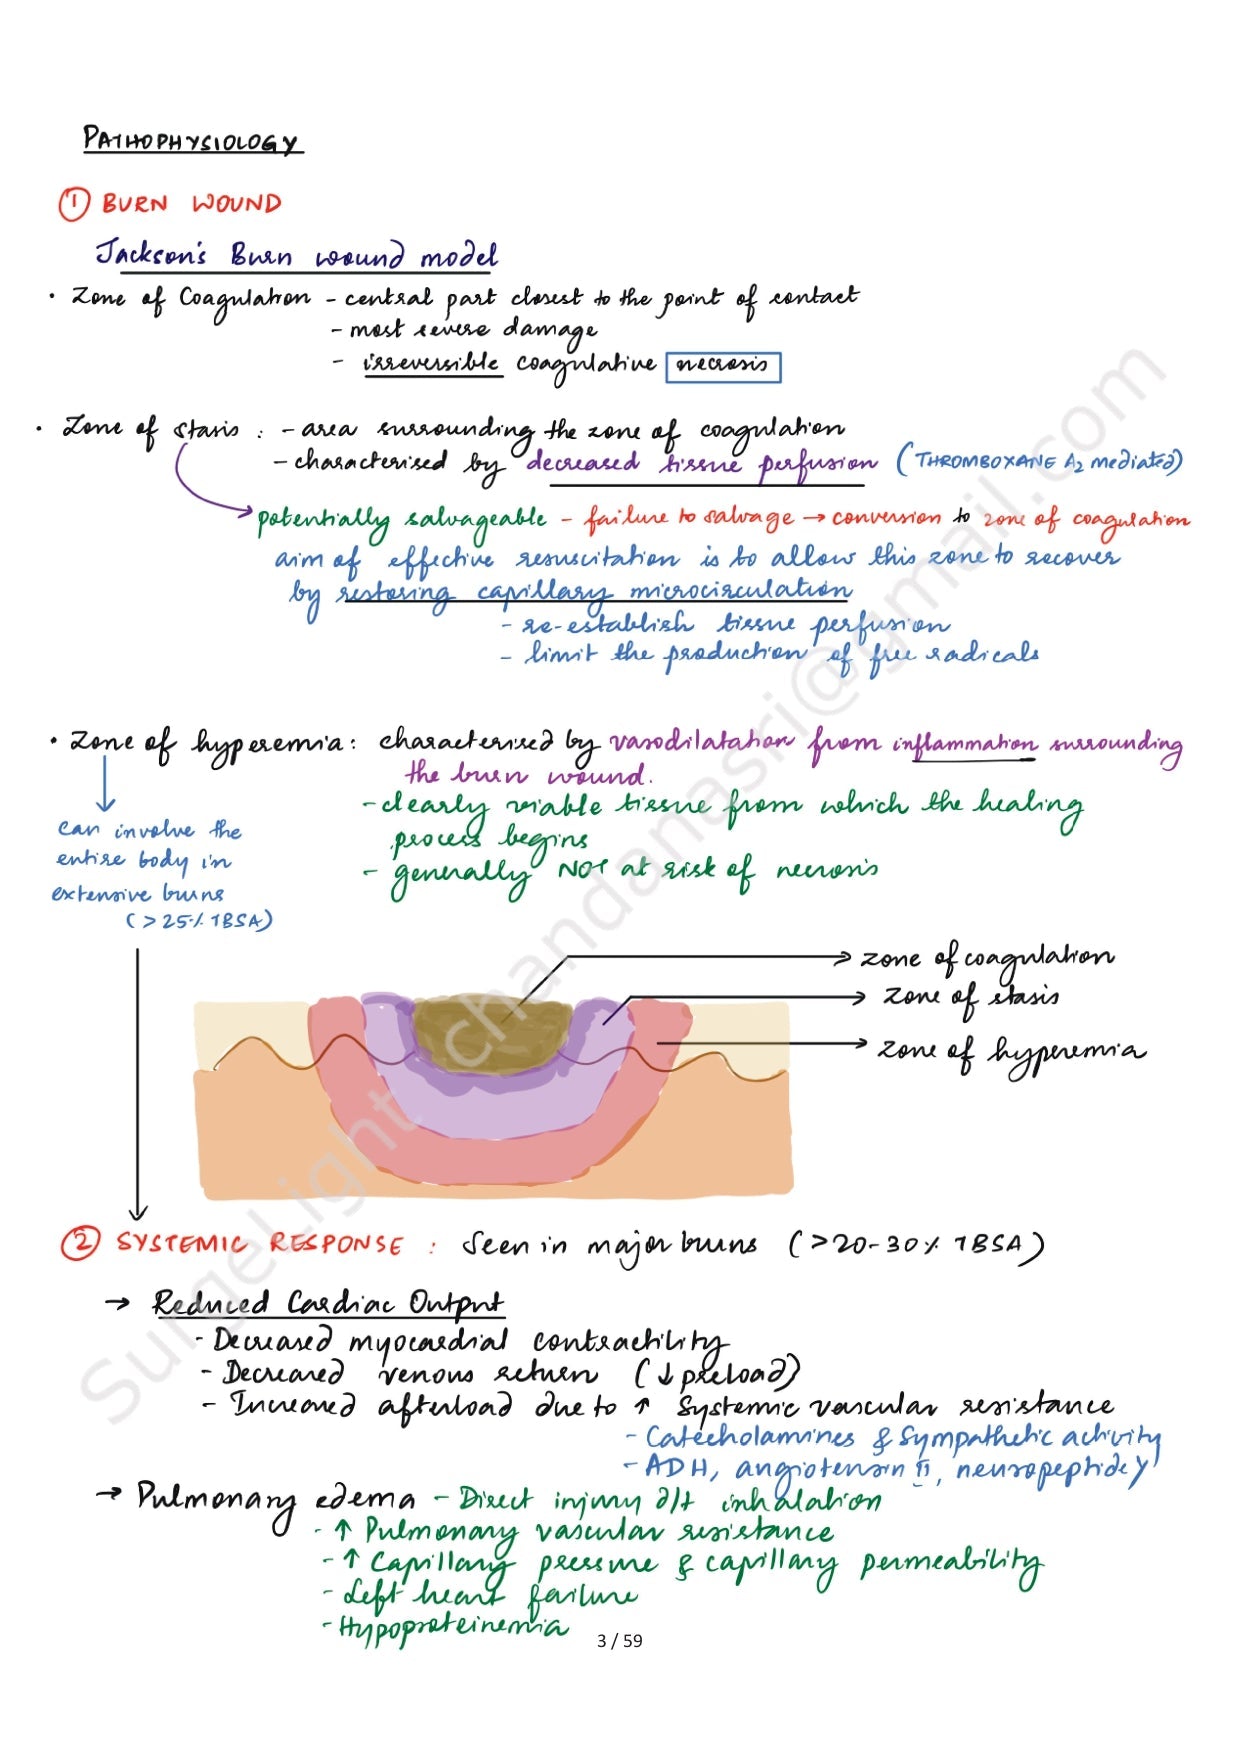 PATHOPHYSIOLOGY
① BURN WOUND
Jackson's Burn wound model
• Zone of Coagulation - central part closest to the point of contact
- most severe damage
- irreversible coagulative necrosis
• Zone of stasis : - area surrounding the zone of coagulation
- characterised by decreased tissue perfusion (THROMBOXANE A2 mediated)
potentially salvageable - failure to salvage → conversion to zone of coagulation
aim of effective resuscitation is to allow this zone to recover
by restoring capillary microcirculation
- re-establish tissue perfusion
- limit the production of free radicals
• Zone of hyperemia : characterised by vasodilatation from inflammation surrounding
the burn wound.
- clearly viable tissue from which the healing
process begins
- generally NOT at risk of necrosis
can involve the
entire body in
extensive burns
(>25% TBSA)
zone of coagulation
zone of stasis
zone of hyperemia
② SYSTEMIC RESPONSE : Seen in major burns (>20-30% TBSA)
→ Reduced Cardiac Output
- Decreased myocardial contractility
- Decreased venous return (↓ preload)
- Increased afterload due to ↑ Systemic vascular resistance
- Catecholamines & sympathetic activity
- ADH, angiotensin II, neuropeptide Y
→ Pulmonary edema - Direct injury d/t inhalation
- ↑ Pulmonary vascular resistance
- ↑ Capillary pressure & capillary permeability
- Left heart failure
- Hypoproteinemia
3 / 59
SurgeLight chandanasri@gmail.com